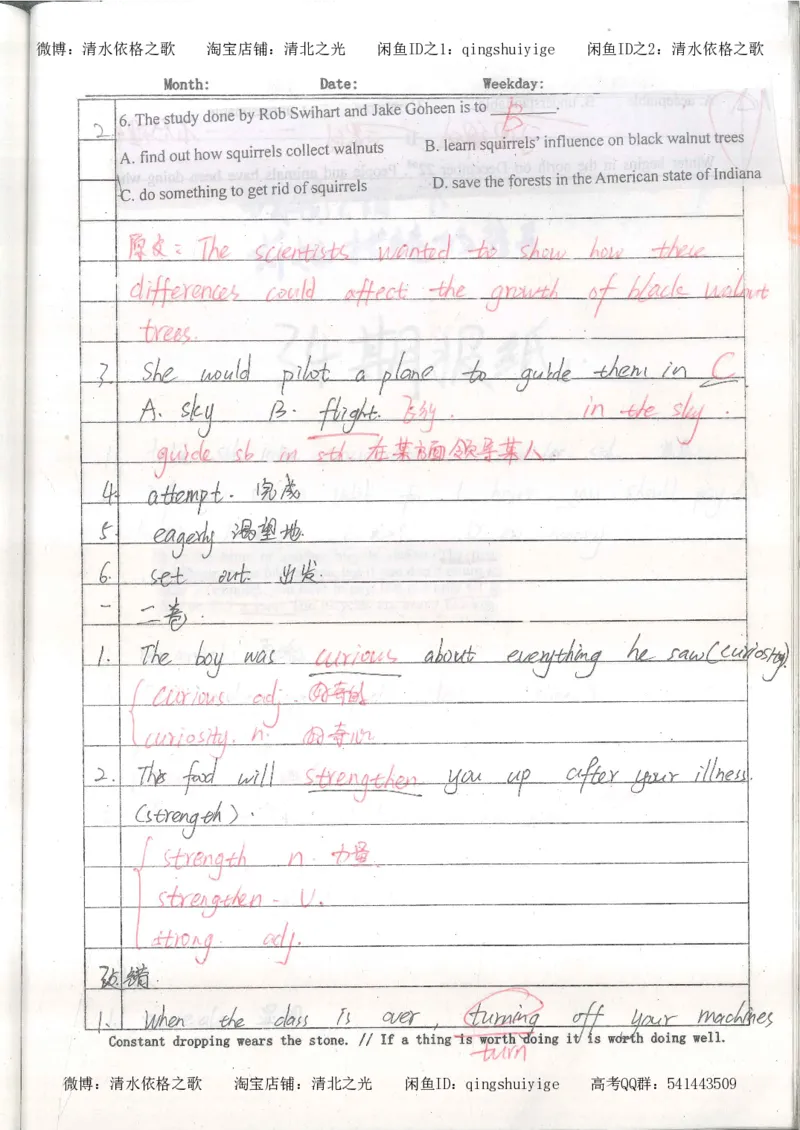 微博：清水依格之歌 淘宝店铺：清北之光 闲鱼ID之1：qingshuiyige 闲鱼ID之2：清水依格之歌
Month: Date: Weekday:
2 6. The study done by Rob Swihart and Jake Goheen is to B.
A. find out how squirrels collect walnuts B. learn squirrels' influence on black walnut trees
C. do something to get rid of squirrels D. save the forests in the American state of Indiana
原文：The scientists wanted to show how these
differences could affect the growth of black walnut
trees.
3. She would pilot a plane to guide them in C
A. sky B. flight. 飞行. in the sky.
guide sb in sth. 在某方面领导某人
4. attempt. 完成
5. eagerly 渴望地.
6. set out. 出发.
二卷.
1. The boy was curious about everything he saw (curiosity)
curious adj. 好奇的
curiosity. n. 好奇心
2. This food will strengthen you up after your illness.
(strength).
strength n. 力量
strengthen - v.
strong. adj.
改错
1. When the class is over, turning off your machines
Constant dropping wears the stone. // If a thing is worth doing it is worth doing well.
turn
微博：清水依格之歌 淘宝店铺：清北之光 闲鱼ID：qingshuiyige 高考QQ群：541443509